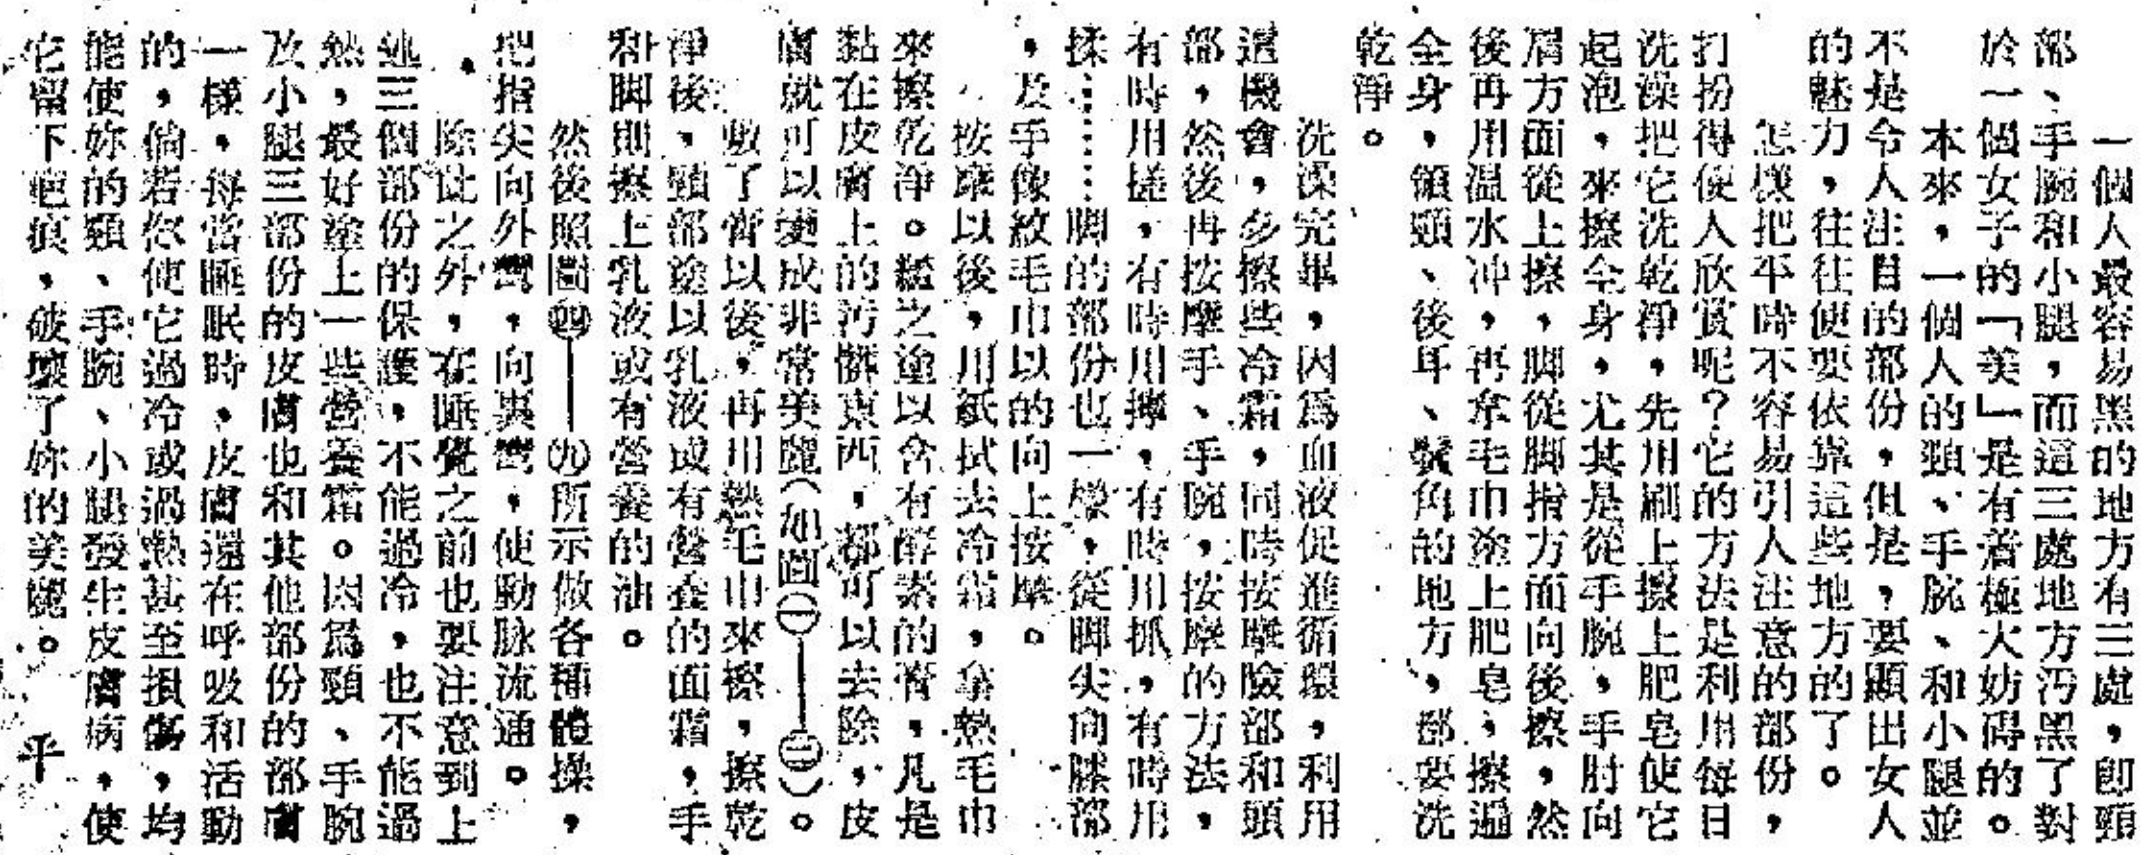 一個人最容易黑的地方有三處，卽頸
部、手腕和小腿，而這三處地方污黑了對
於一個女子的「美」是有着極大妨碍的。
本來，一個人的頸、手腕、和小腿並
不是令人注目的部份，但是，要顯出女人
的魅力，往往便要依靠這些地方的了。
怎樣把平時不容易引人注意的部份，
打扮得使人欣賞呢？它的方法是利用每日
洗澡把它洗乾淨，先用刷上擦上肥皂使它
起泡，來擦全身，尤其是從手腕，手肘向
肩方面從上擦，脚從脚指方面向後擦，然
後再用温水冲，再拿毛巾塗上肥皂，擦遍
全身，頷頸、後耳、鬢角的地方，都要洗
乾淨。
洗澡完畢，因爲血液促進循環，利用
這機會，多擦些冷霜，同時按摩臉部和頭
部，然後再按摩手、手腕，按摩的方法，
有時用搓，有時用擰，有時用抓，有時用
揉……脚的部份也一樣，從脚尖向膝部
，及手像絞毛巾以的向上按摩。
按摩以後，用紙拭去冷霜，拿熱毛巾
來擦乾淨。繼之塗以含有酵素的膏，凡是
黏在皮膚上的污髒東西，都可以去除，皮
膚就可以變成非常美麗（如圖㊀——㊂）。
敷了膏以後，再用熱毛巾來擦，擦乾
淨後，頸部塗以乳液或有營養的面霜，手
和脚則擦上乳液或有營養的油。
然後照圖㊃——㊈所示做各種體操，
把指尖向外彎，向裏彎，使動脉流通。
除此之外，在睡覺之前也要注意到上
述三個部份的保護，不能過冷，也不能過
熱，最好塗上一些營養霜。因爲頸、手腕
及小腿三部份的皮膚也和其他部份的部膚
一樣，每當睡眠時，皮膚還在呼吸和活動
的，倘若你使它過冷或過熱甚至損傷，均
能使妳的頸、手腕、小腿發生皮膚病，使
它留下疤痕，破壞了妳的美麗。　平